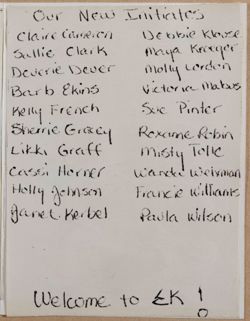 Our New Initiates
Claire Cameron
Sallie Clark
Deverie Dever
Barb Ekins
Kelly French
Sherrie Gracey
Likki Graff
Cassi Horner
Holly Johnson
Janet Kerbel
Debbie Klouse
Maya Kreeger
Molly Lordon
Victoria Mabus
Sue Pinter
Roxanne Robin
Misty Tolle
Wanda Wehrman
Francie Williams
Paula Wilson
Welcome to ΣK!